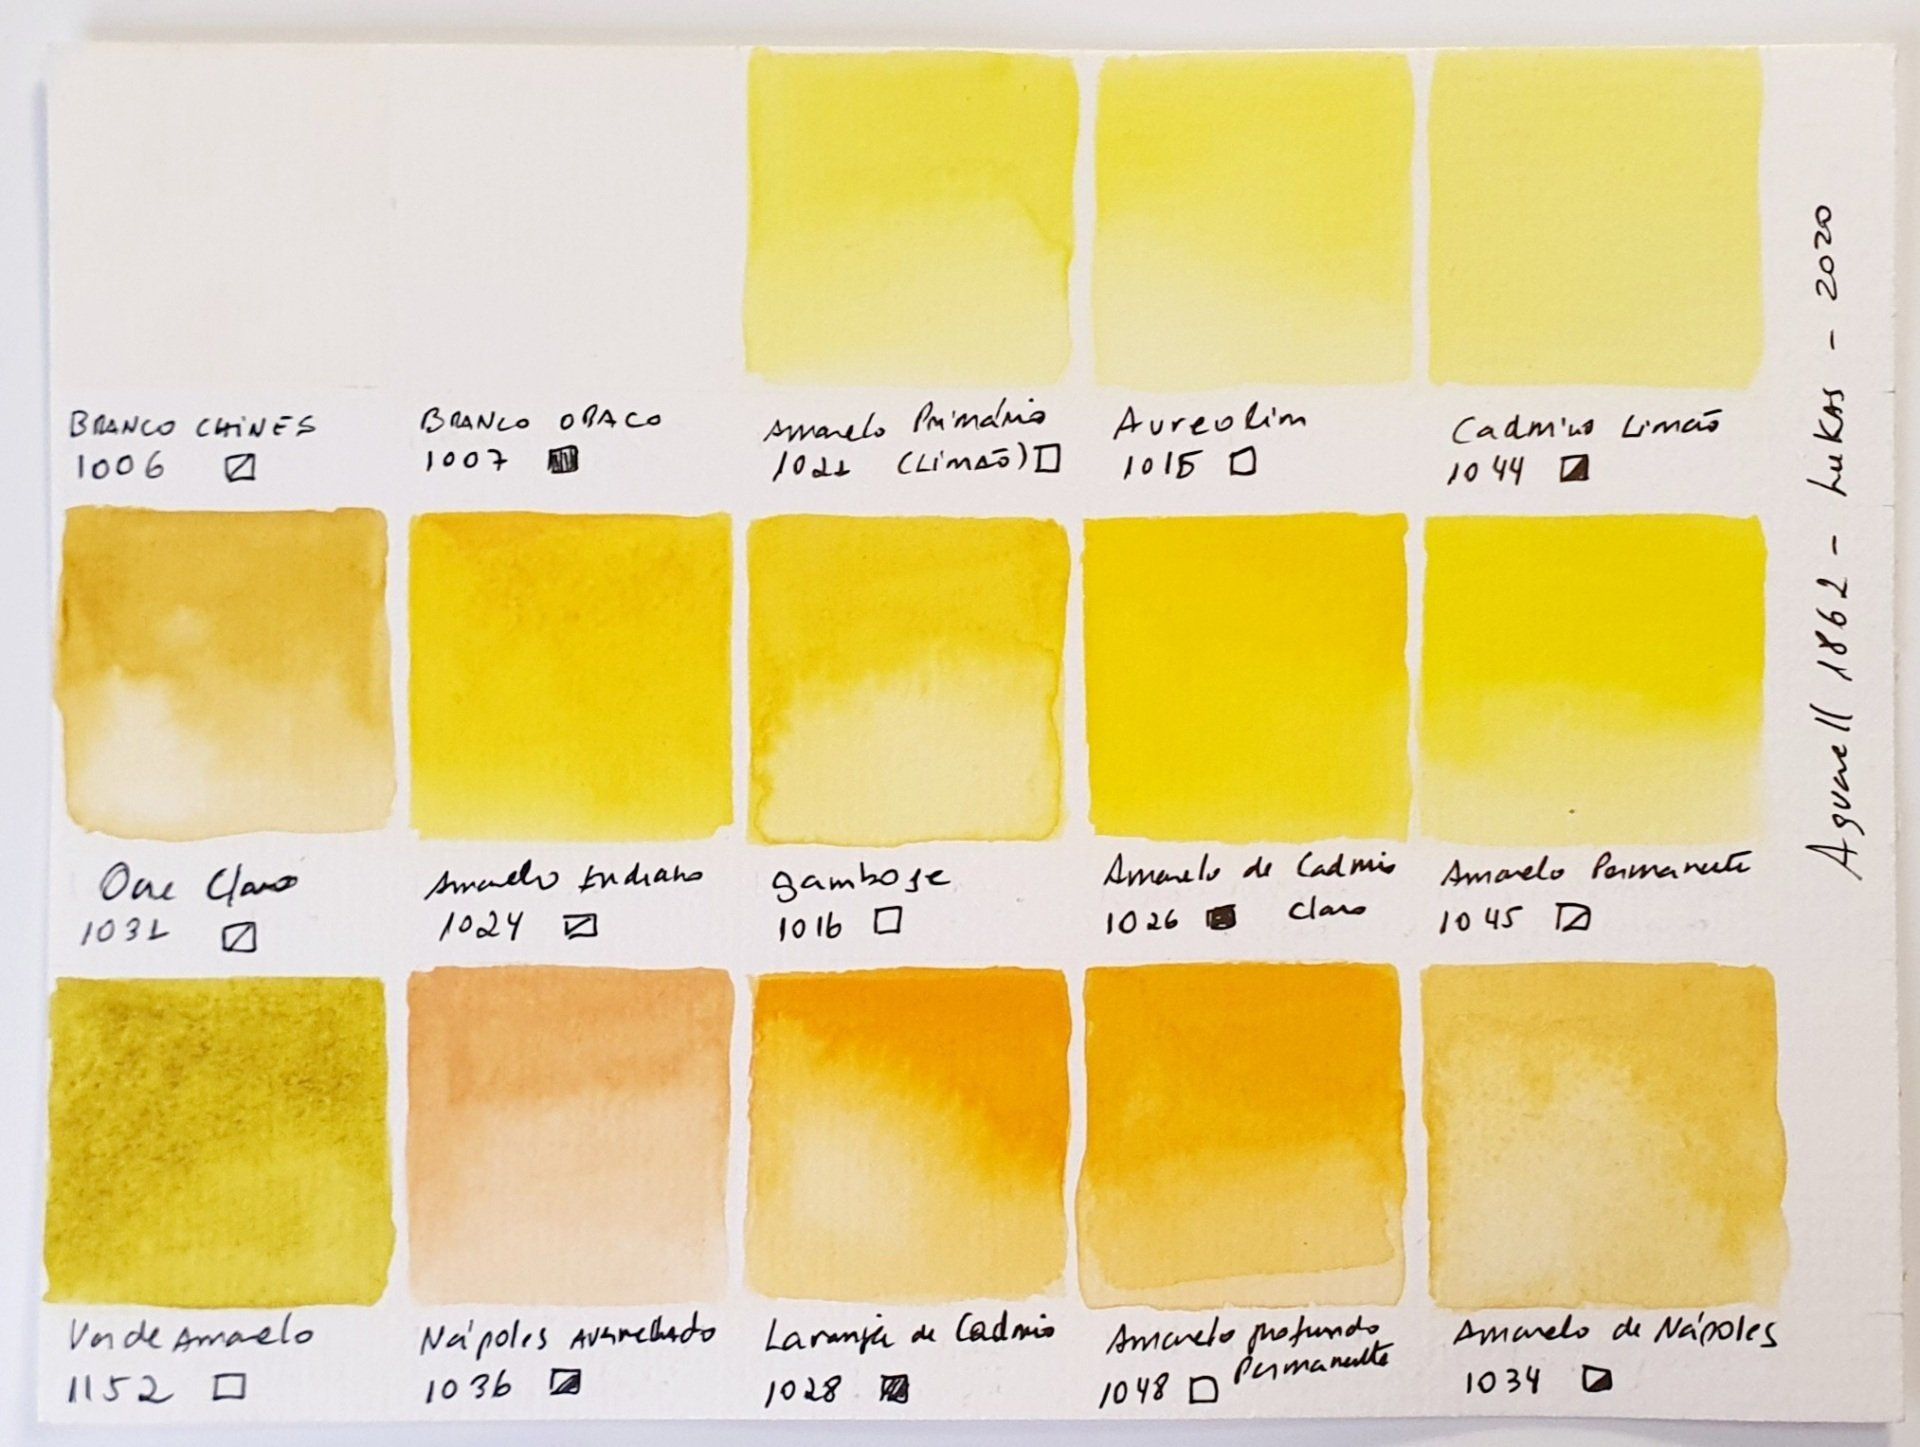 BRANCO CHINÊS
1006
BRANCO OPACO
1007
Amarelo Primário
1021 (Limão)
Aureolim
1015
Cadmiun Limão
1044
Ocre Claro
1031
Amarello Indiano
1024
gamboge
1016
Amarelo de Cadmio
1026 Claro
Amarelo Permanente
1045
Verde Amarelo
1152
Nápoles Avermelhado
1036
Laranja de Cadmio
1028
Amarelo profundo
Permanente
1048
Amarelo de Nápoles
1034
Aquarell 1862 - LuKAS - 2020